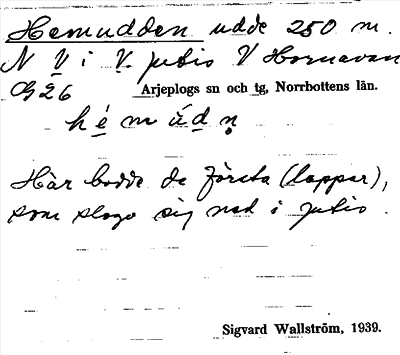 Hemudden udde 250 m.
N V i V. Jutis V Hornavan
G 26 Arjeplogs sn och tg, Norrbottens län.
h é m ú d n̥
Här bodde de första (lappar),
som slogo sig ned i Jutis.
Sigvard Wallström, 1939.